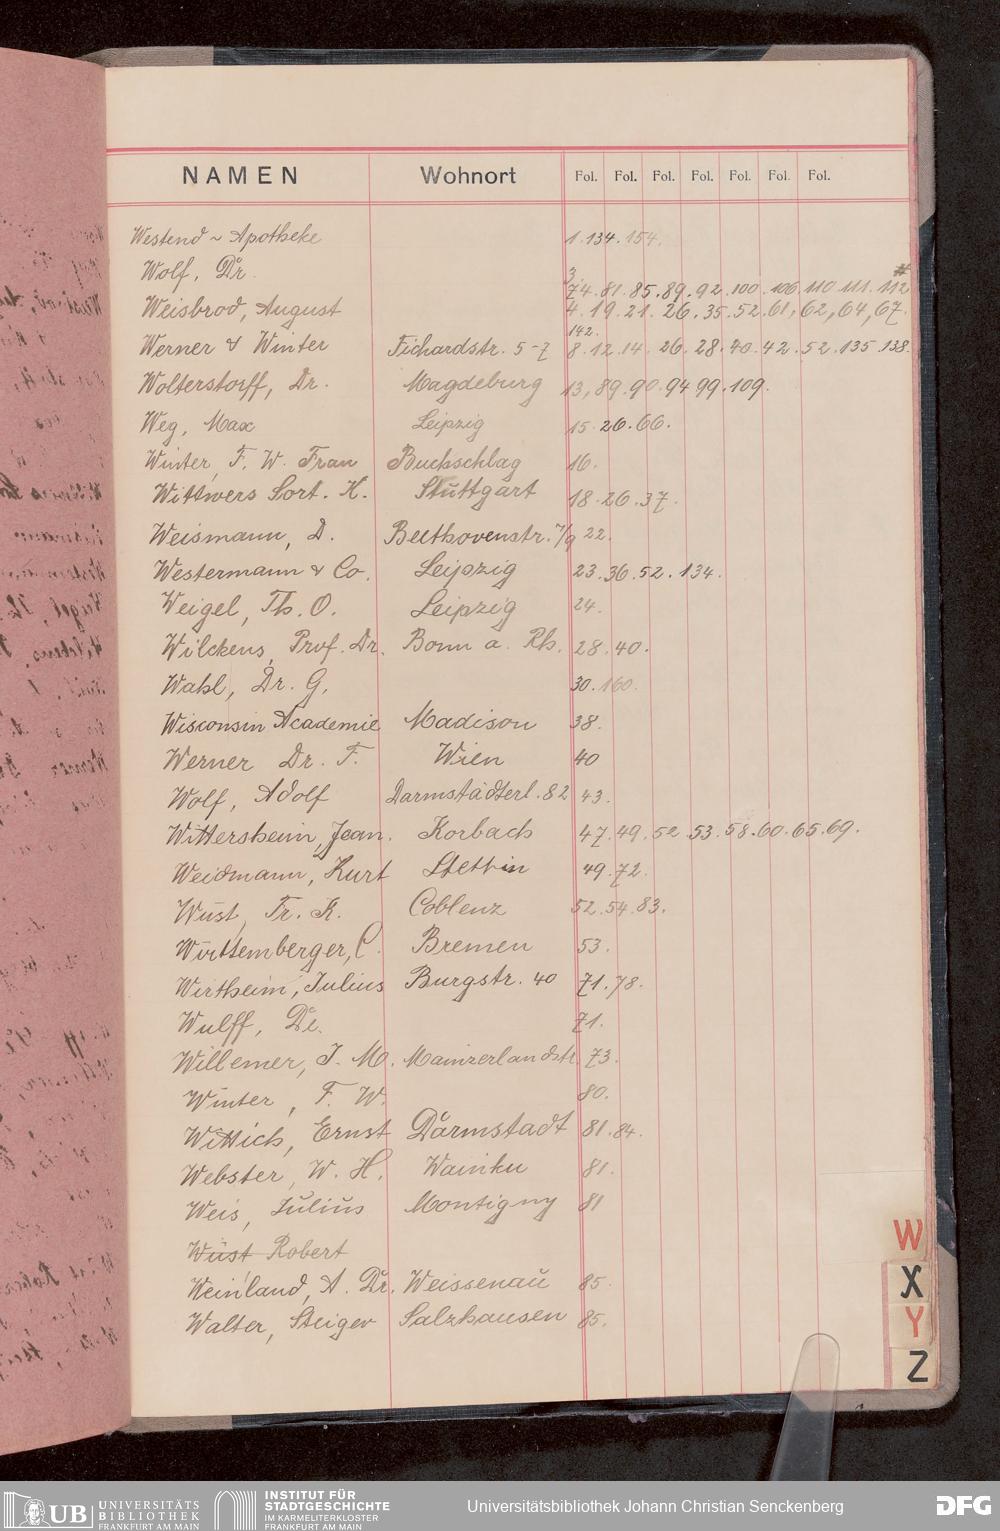 NAMEN Wohnort Fol. Fol. Fol. Fol. Fol. Fol. Fol.
Westend-Apotheke 1. 134. 154.
Wolf, Dr. 3. 74. 81. 85. 89. 92. 100. 106. 110. 111. 112 #
Weisbrod, August 4. 19. 21. 26. 35. 52. 61, 62, 64, 67.
142.
Werner & Winter Fichardstr. 5-7 8. 12. 14. 26. 28. 40. 42. 52. 135. 138.
Wolterstorff, Dr. Magdeburg 13, 89. 90. 94 99. 109.
Weg, Max Leipzig 15. 26. 66.
Winter, F. W. Frau Buchschlag 16.
Wittwers Sort. K. Stuttgart 18. 26. 37.
Weismann, D. Beethovenstr. 7/9 22.
Westermann & Co. Leipzig 23. 36. 52. 134.
Weigel, Th. O. Leipzig 24.
Wilckens, Prof. Dr. Bonn a. Rh. 28. 40.
Wahl, Dr. G. 30. 160.
Wisconsin Academie Madison 38.
Werner Dr. F. Wien 40
Wolf, Adolf Darmstädterl. 82 43.
Wittersheim, Jean. Korbach 47. 49. 52. 53. 58. 60. 65. 69.
Weidmann, Kurt Stettin 49. 72.
Wüst, Fr. K. Coblenz 52. 54. 83.
Württemberger, C. Bremen 53.
Wertheim, Julius Burgstr. 40 71. 78.
Wulff, Dr. 71.
Willemer, J. M. Mainzerlandstr. 73.
Winter, F. W. 80.
Wittich, Ernst Darmstadt 81. 84.
Webster, W. H. Wainku 81.
Weis, Julius Montigny 81
Wüst Robert
Weinland, A. Dr. Weissenau 85.
Walter, Steiger Salzhausen 85.
W
X
Y
Z
UB UNIVERSITÄTS
BIBLIOTHEK
FRANKFURT AM MAIN
INSTITUT FÜR
STADTGESCHICHTE
IM KARMELITERKLOSTER
FRANKFURT AM MAIN
Universitätsbibliothek Johann Christian Senckenberg
DFG